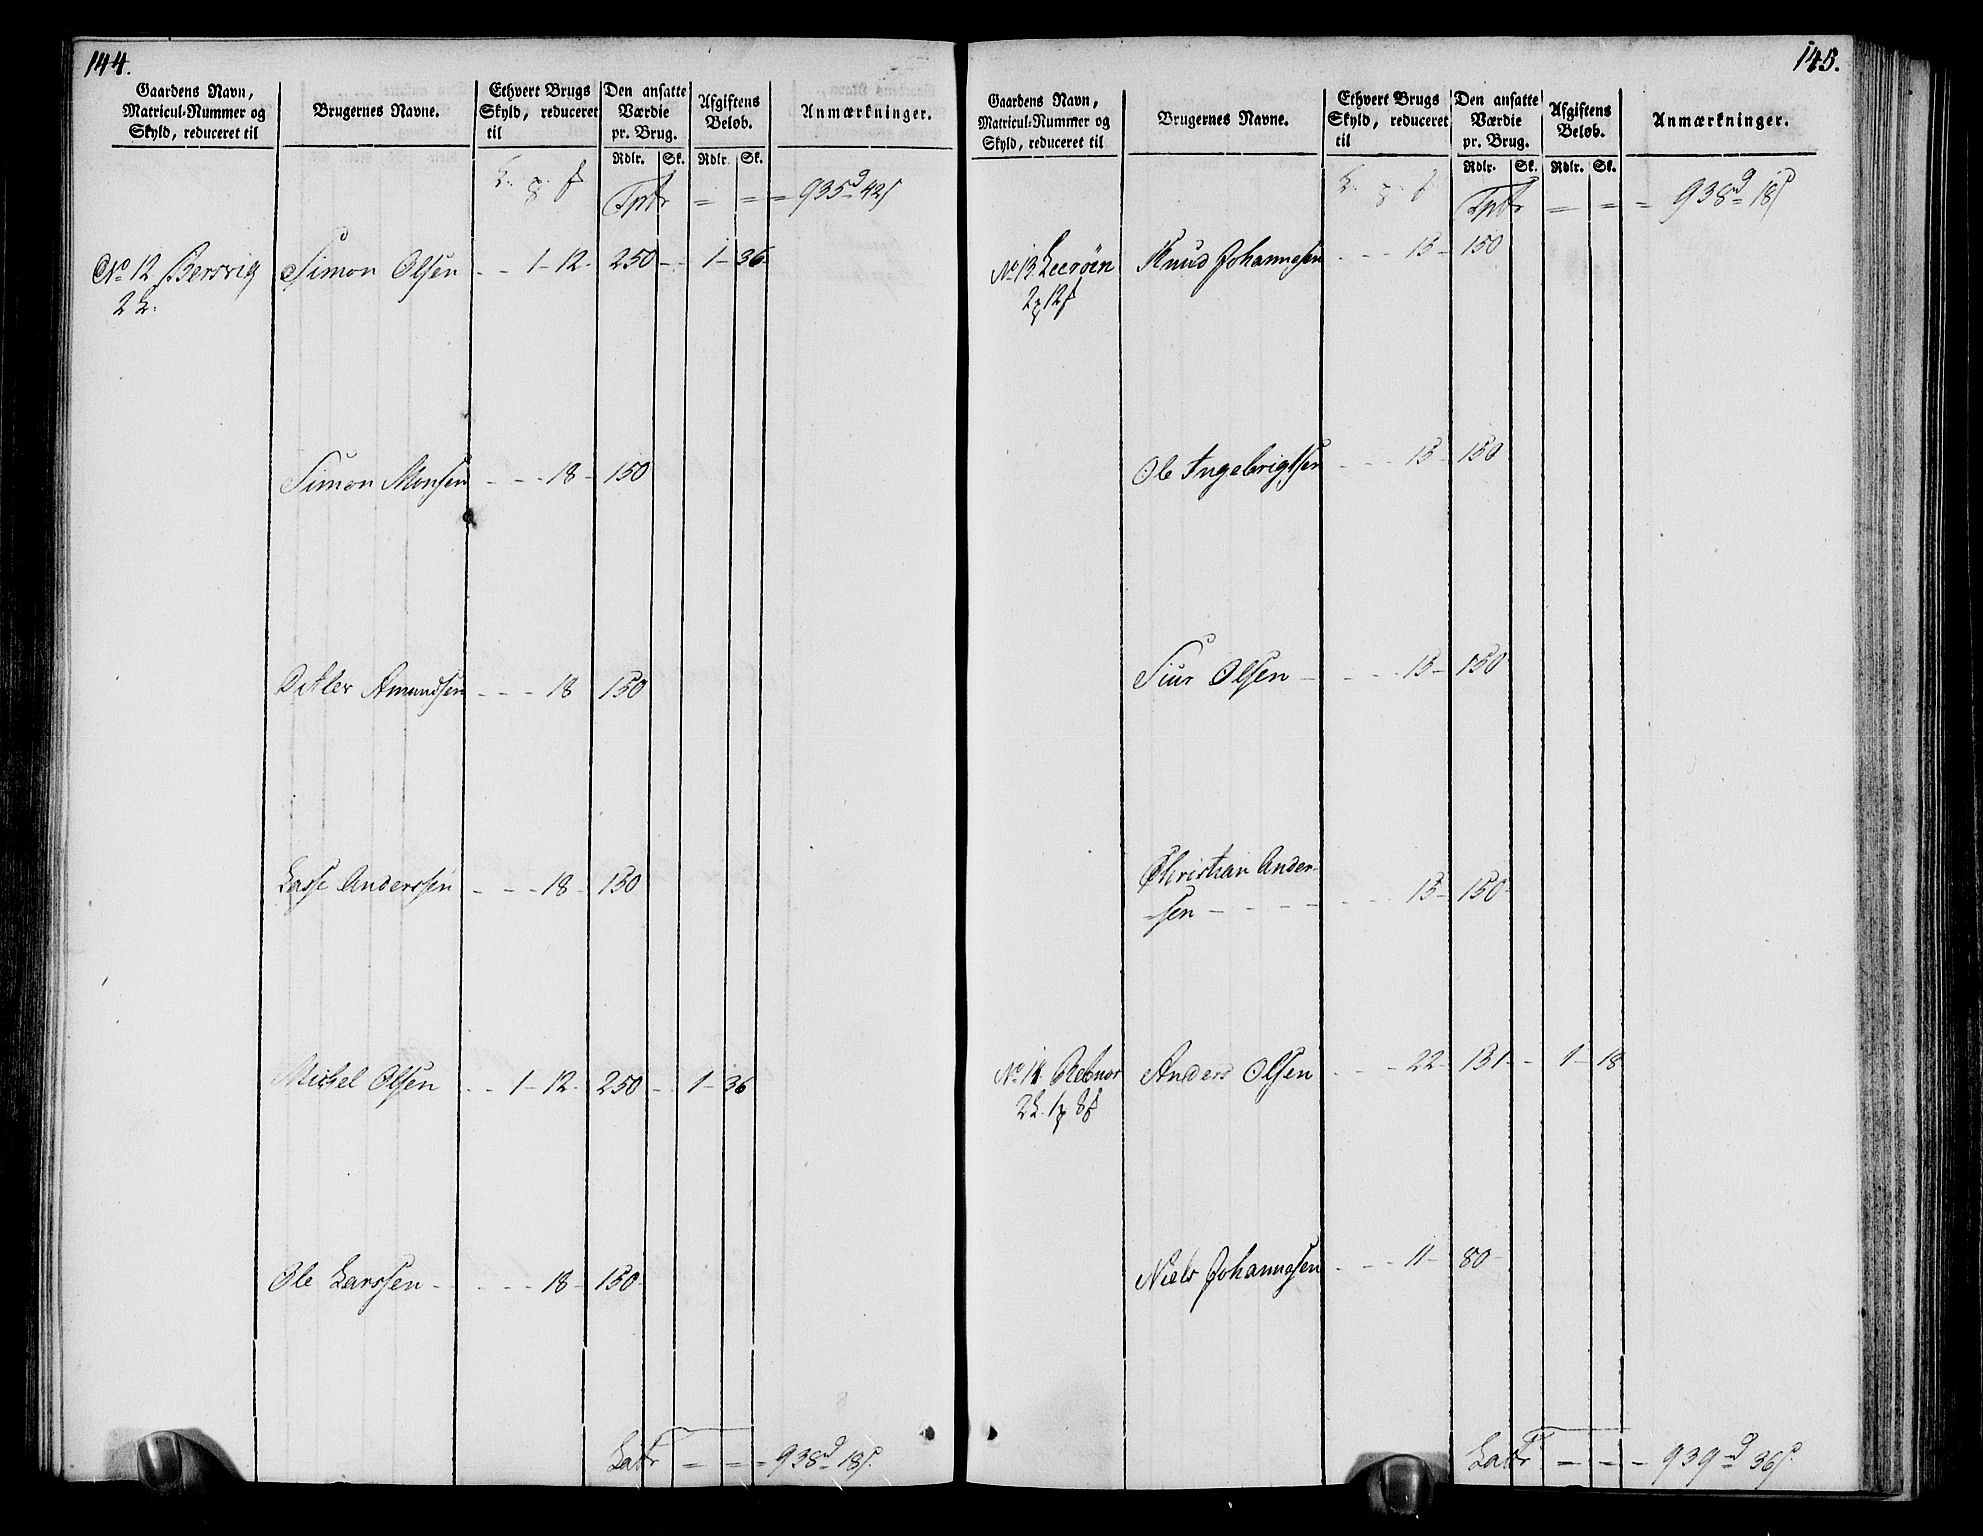 144.
Gaardens Navn, Matricul-Nummer og Skyld, reduceret til | Brugernes Navne. | Ethvert Brugs Skyld, reduceret til | Den ansatte Værdie pr. Brug. | Afgiftens Beløb. | Anmærkninger.
Rdlr. Sk. Rdlr. Sk.
Tptr = = = 935d 42s
No 12 Bersvig Simon Olsen - - 1 - 12 - 250 - - 1 - 36
2 L.
Simon Monsen - - - 18 - 150
Ditlev Amundsen - - - 18 150
Lasse Anderssen - - - 18 - 150
Michel Olsen - - 1 - 12 - 250 - - 1 - 36
Ole Larssen - - - - 18 - 150
Latr = = = 938d 18s.
145.
Gaardens Navn, Matricul-Nummer og Skyld, reduceret til | Brugernes Navne. | Ethvert Brugs Skyld, reduceret til | Den ansatte Værdie pr. Brug. | Afgiftens Beløb. | Anmærkninger.
Rdlr. Sk. Rdlr. Sk.
Tptr = = = 938d 18s
No 13 Leeröen Knud Johannesen - - - 15 - 150
2 12
Ole Ingebrigtsen - - - 15 - 150
Siur Olsen - - - - 15 - 150
Christian Ander-
-sen - - - - - - - 15 - 150
No 14 Rebnor Anders Olsen - - - 22 - 131 - 1 - 18
2 L. 1 8
Niels Johannesen - - - 11 - 80 -
Latr = = = 939d 36s.